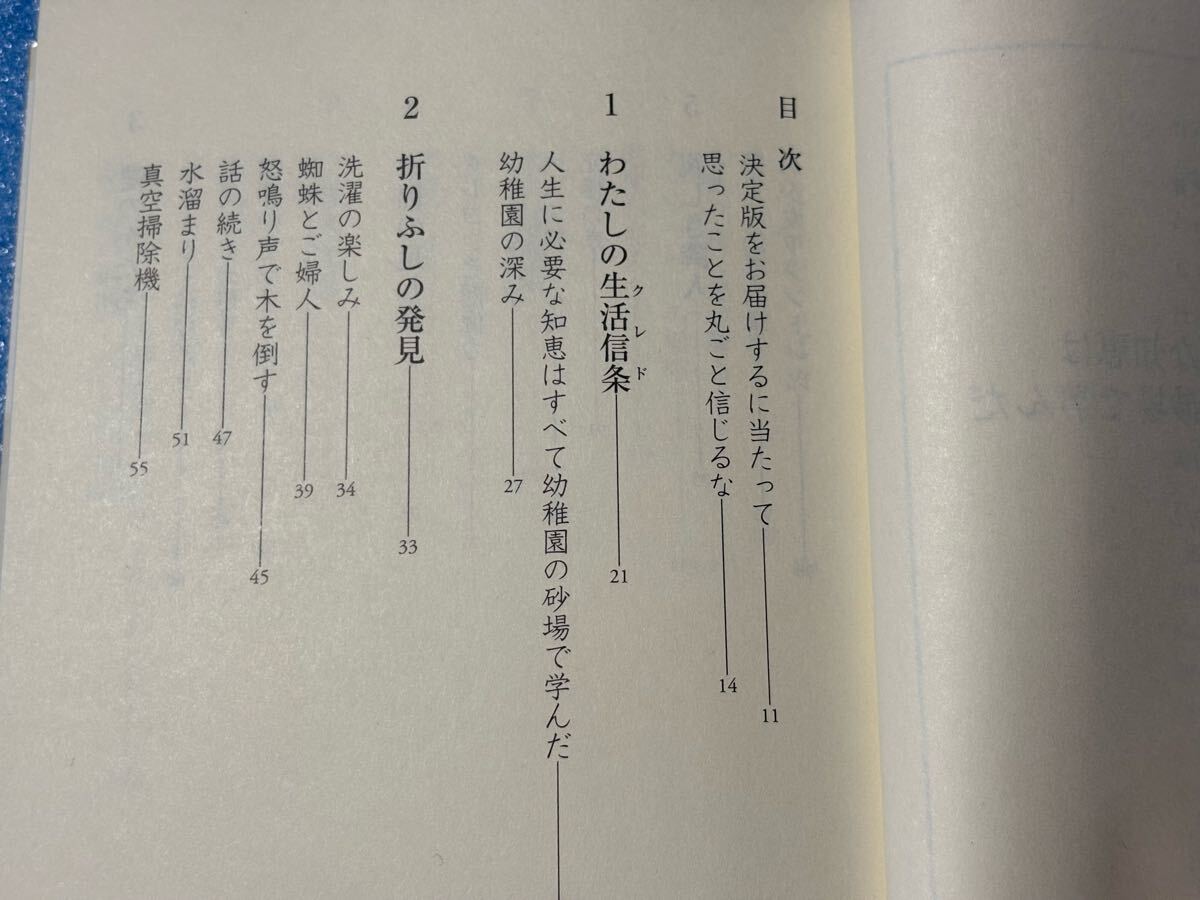 目次
決定版をお届けするに当たって 11
思ったことを丸ごと信じるな 14
1 わたしの生活信条 21
クレド
人生に必要な知恵はすべて幼稚園の砂場で学んだ
幼稚園の深み 27
2 折りふしの発見 33
洗濯の楽しみ 34
蜘蛛とご婦人 39
怒鳴り声で木を倒す 45
話の続き 47
水溜まり 51
真空掃除機 55